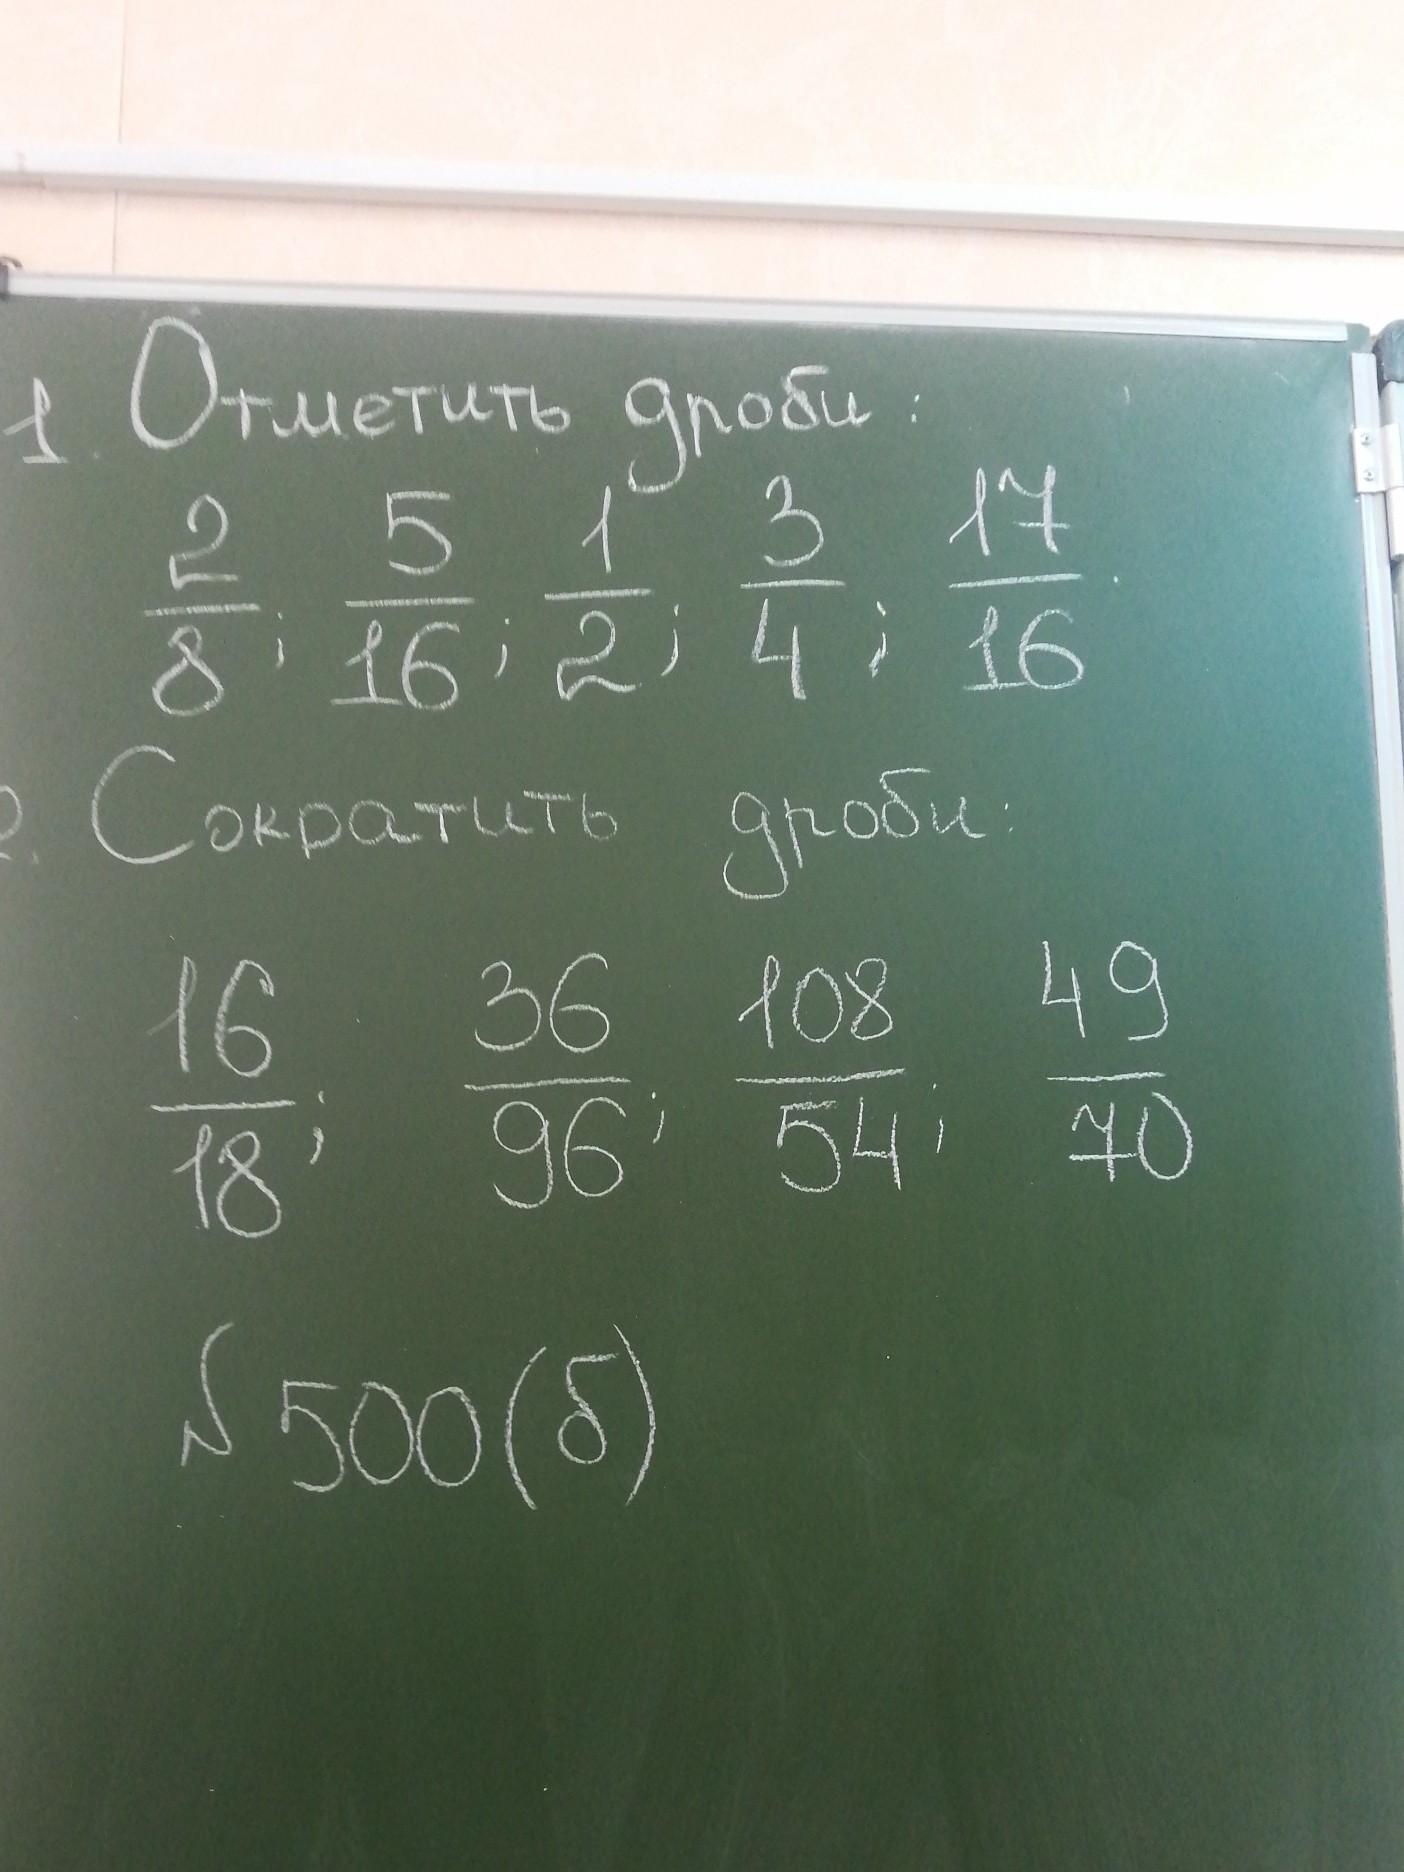 1. Отметить дроби:
2/8; 5/16; 1/2; 3/4; 17/16.
2. Сократить дроби:
16/18; 36/96; 108/54; 49/70
№ 500(б)